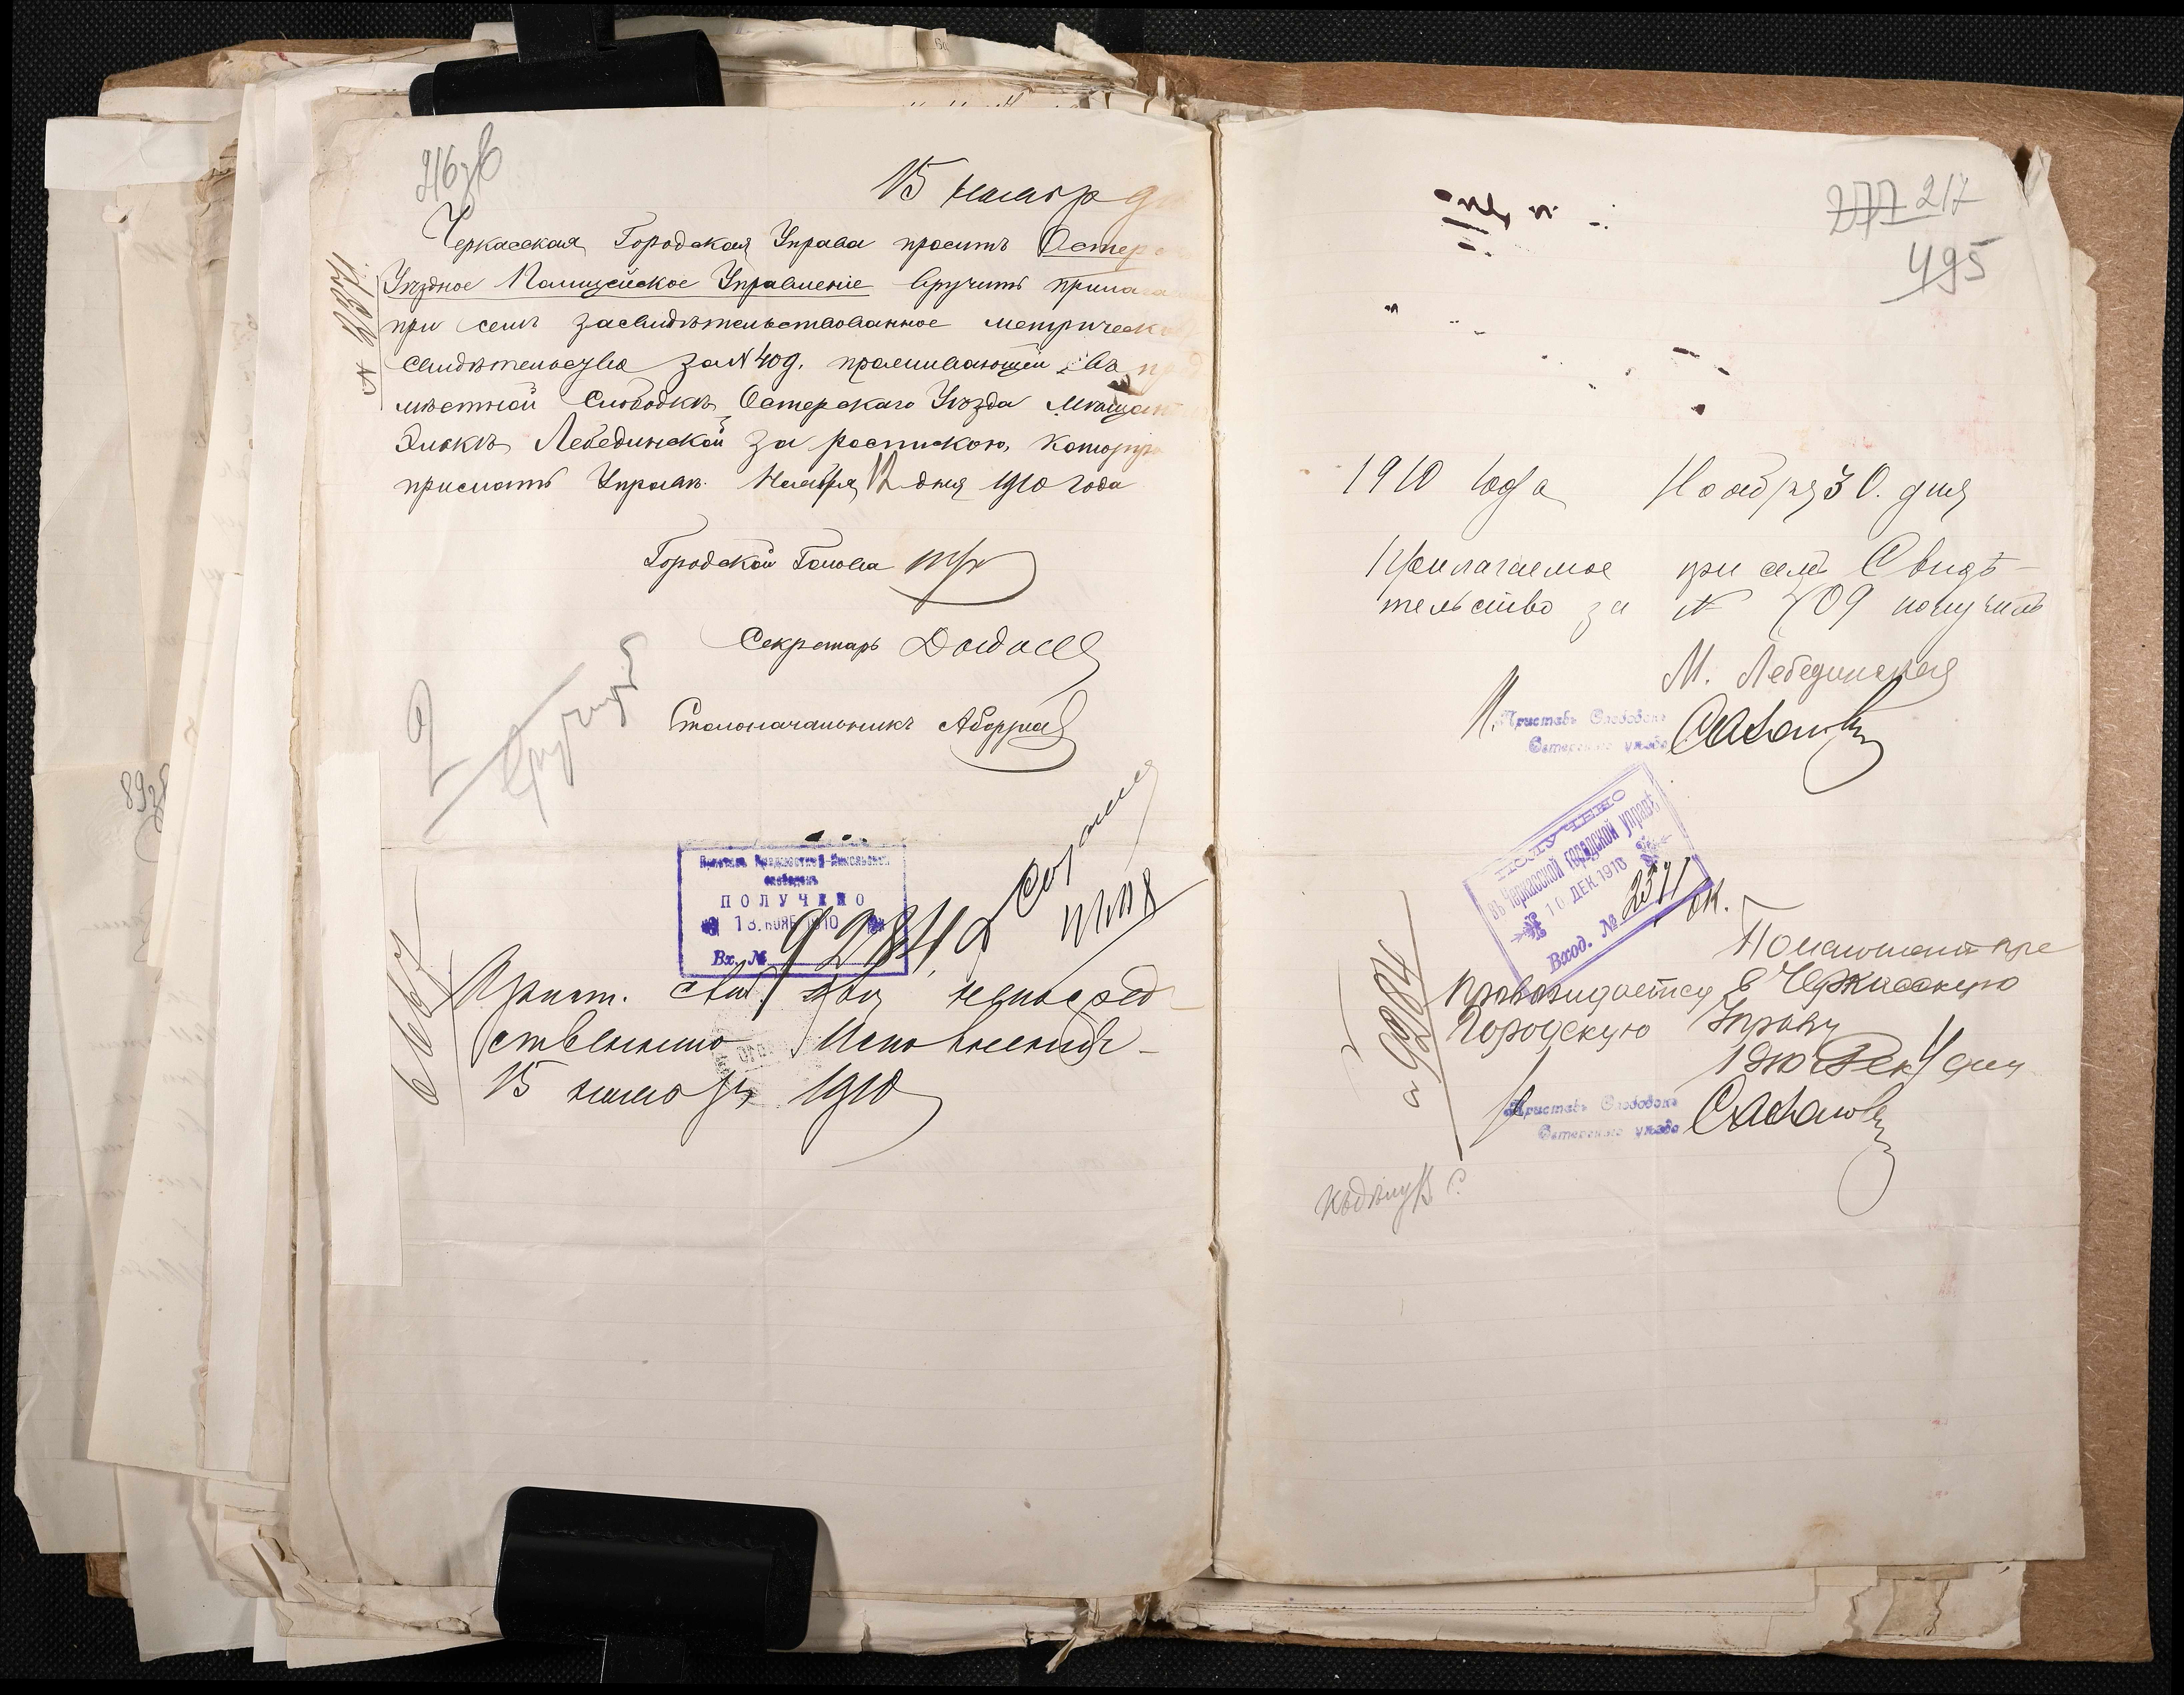 216 об
15 ноября
Черкасская Городская Управа проситъ Остер
Уѣздное Полицейское Управленіе вручить прилага
при семъ засвидѣтельствованное метрическо
свидѣтельство за N 409. проживающей въ пред
мѣстной Слободкѣ Остерскаго Уѣзда Мѣщан
Лебединской за роспискою, котор
прислать Управѣ. Ноября 12 дня 1910 года
Городской Голова
Секретарь
Столоначальникъ
2
ПОЛУЧЕНО
13 НОЯБ 1910
Вх. № 9284
Прист. непосред
ственнно Исполненія
15 ноября 1910
6167
277 217
495
1910 года Ноября 30. дня
Прилагаемое при семъ Свидѣ-
тельство за N 409 получила
М. Лебединская
Приставъ Слободокъ
Остерскаго уѣзда
ПОЛУЧЕНО
въ Черкасской городской управѣ
10 ДЕК 1910
Вход. № 2571
По исполненіи пре
провождается в Черкасскую
Городскую Управу
1910 Дек 4 дня
N 9284
Приставъ Слободокъ
Остерскаго уѣзда
8928